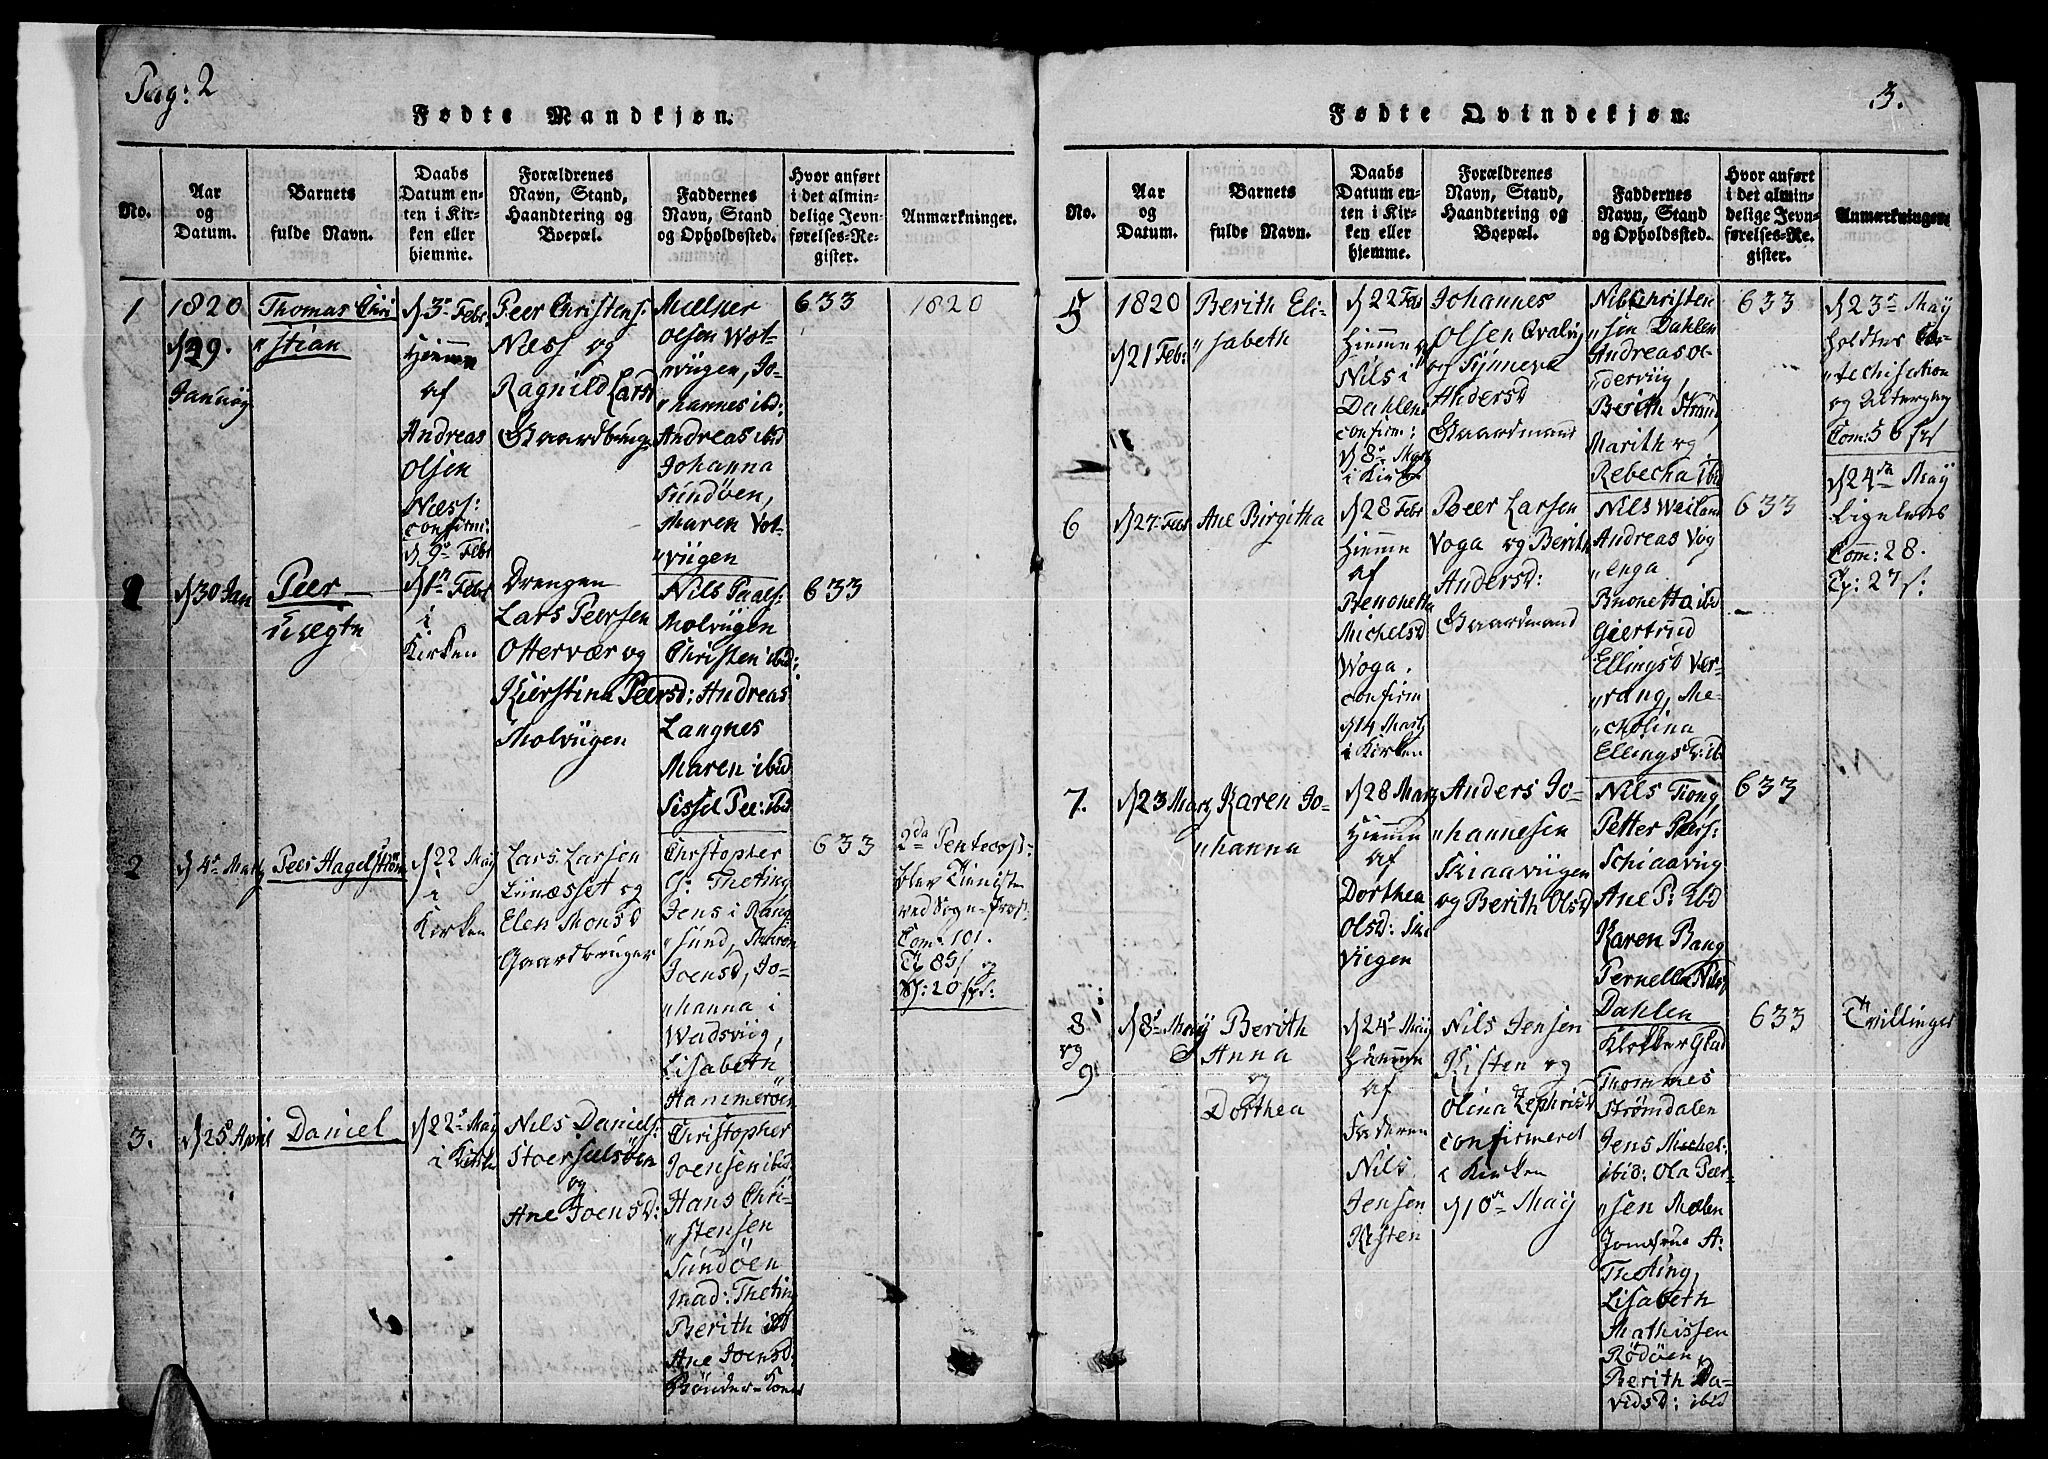 Pag: 2
Fødte Mandkjøn.
No.
Aar
og
Datum.
Barnets
fulde Navn.
Daabs
Datum en-
ten i Kir-
ken eller
hjemme.
Forældrenes
Navn, Stand,
Haandtering og
Boepæl.
Faddernes
Navn, Stand
og Opholdssted.
Hvor anført
i det almin-
delige Jevn-
førelses-Re-
gister.
Anmærkninger.
1
1820
Januøy
Thomas Chri
„stian
d 3 Febr
Hiemme
af
Andreas
Olsen
Næss:
confirm:
d 9 Febr
Peer Christens:
Næss og
Ragnild Larsd
Gaardbruger
Mælner
Olsen Wot-
wiigen, Jo-
„hannes ibd:
Andreas ibd
Johanna
Sundøen,
Maren Vot-
„viigen
633
1820
d 30 Jan
Peer
Uægte
d 1 Febr
i
Kirken
Drengen
Lars Peersen
Otterværog
Kierstina Peersd:
Molviigen
Nils Paals:
Molviigen
Christen ibid:
Andreas
Langnes
Maren ibid
Sissel Pee: ibd
633
2
d 4 Martz
Peer Hagelstrøm
d 22 May
i
Kirken
Lars Larsen
Lunæsset og
Elen Monsd
Gaardbruger
Christopher
C: Theting
Jens i Rang
„sund, Maren
Joensd, Jo-
„hanna i
Wadsviig,
Lisabeth
Hammerøen
633
2da Pentecost:
blev Tieniste
ved Sogn-Præst:
Com: 101.
og
3.
d 25 April
Daniel
d 22 May
i Kirken
Nils Daniels:
Stoerselsøen
og
Ane Joensd:
Christopher
Joensen ibid
Hans Chri-
„stensen
Sundøen
Mad: Theting
Berith ibd
Ane Joensd:
Bønder-Koner
3.
Fødte Qvindekjøn.
No.
Aar
og
Datum.
Barnets
fulde Navn.
Daabs
Datum en-
ten i Kir-
ken eller
hjemme.
Forældrenes
Navn, Stand,
Haandtering og
Boepæl.
Faddernes
Navn, Stand
og Opholdssted.
Hvor anført
i det almin-
delige Jevn-
førelses-Re-
gister.
Anmærkninger
5
1820
d 21 Febr
Berith Eli-
„sabeth
d 22 Feb
Hiemme af
Nils i
Dahlen
confirm:
d 8 Martz
i Kirken
Johannes
Olsen Qvalvig
og Synneva
Andersd
Gaardmand
Nils Christen
„sen Dahlen
Andreas o-
„derviig,
Berith Strand
Marith og
Rebecha ibd
633
d 23 May
holdtes Ca-
„techisation
og Altergang
Com: 56
6
d 27 Feb
Ane Birgitha
d 28 Febr
Hiemme
af
Benonetta
Michelsd
Woga.
confirm
d 14 Martz
i Kirken
Peer Larsen
Voga og Berith
Andersd:
Gaardmand
Nils Weiland
Andreas Vog
„enga
Bnonetta ibd
Giertrud
Ellingsd Vær-
„rang, Me-
„cholina
Ellingsd: ibd
633
d 24 May
Ligeledes
Com: 28.
7.
d 23 Martz
Karen Jo-
„hanna
d 28 Martz
Hiemme
af
Dorthea
Olsd: Ski
Viigen
Anders Jo-
„hannesen
Skiaaviigen
og Berith Olsd
Nils Tiong
Petter Peers:
Schiaavig
Ane P: ibd
Karen Bang
Pernella Nilsd
Dahlen
633
8
og
9
d 8 May
Berith
Anna
og
Dorthea
d 24 May
Hiemme
af
Faderen
Nils
Jensen
Kisten
Nils Jensen
Kisten og
Olina Zephrisd
confirmeret
i Kirken
d 10 May
Klokker Glad
Thommes
Strømdalen
Jens Michel:
ibid: Ola Peer-
„sen Mælen
Jomfrue A:
Theting,
Lisabeth
Mathissen
Rødøen,
Berith Da-
vidsd: ibid
633
Tvillinger